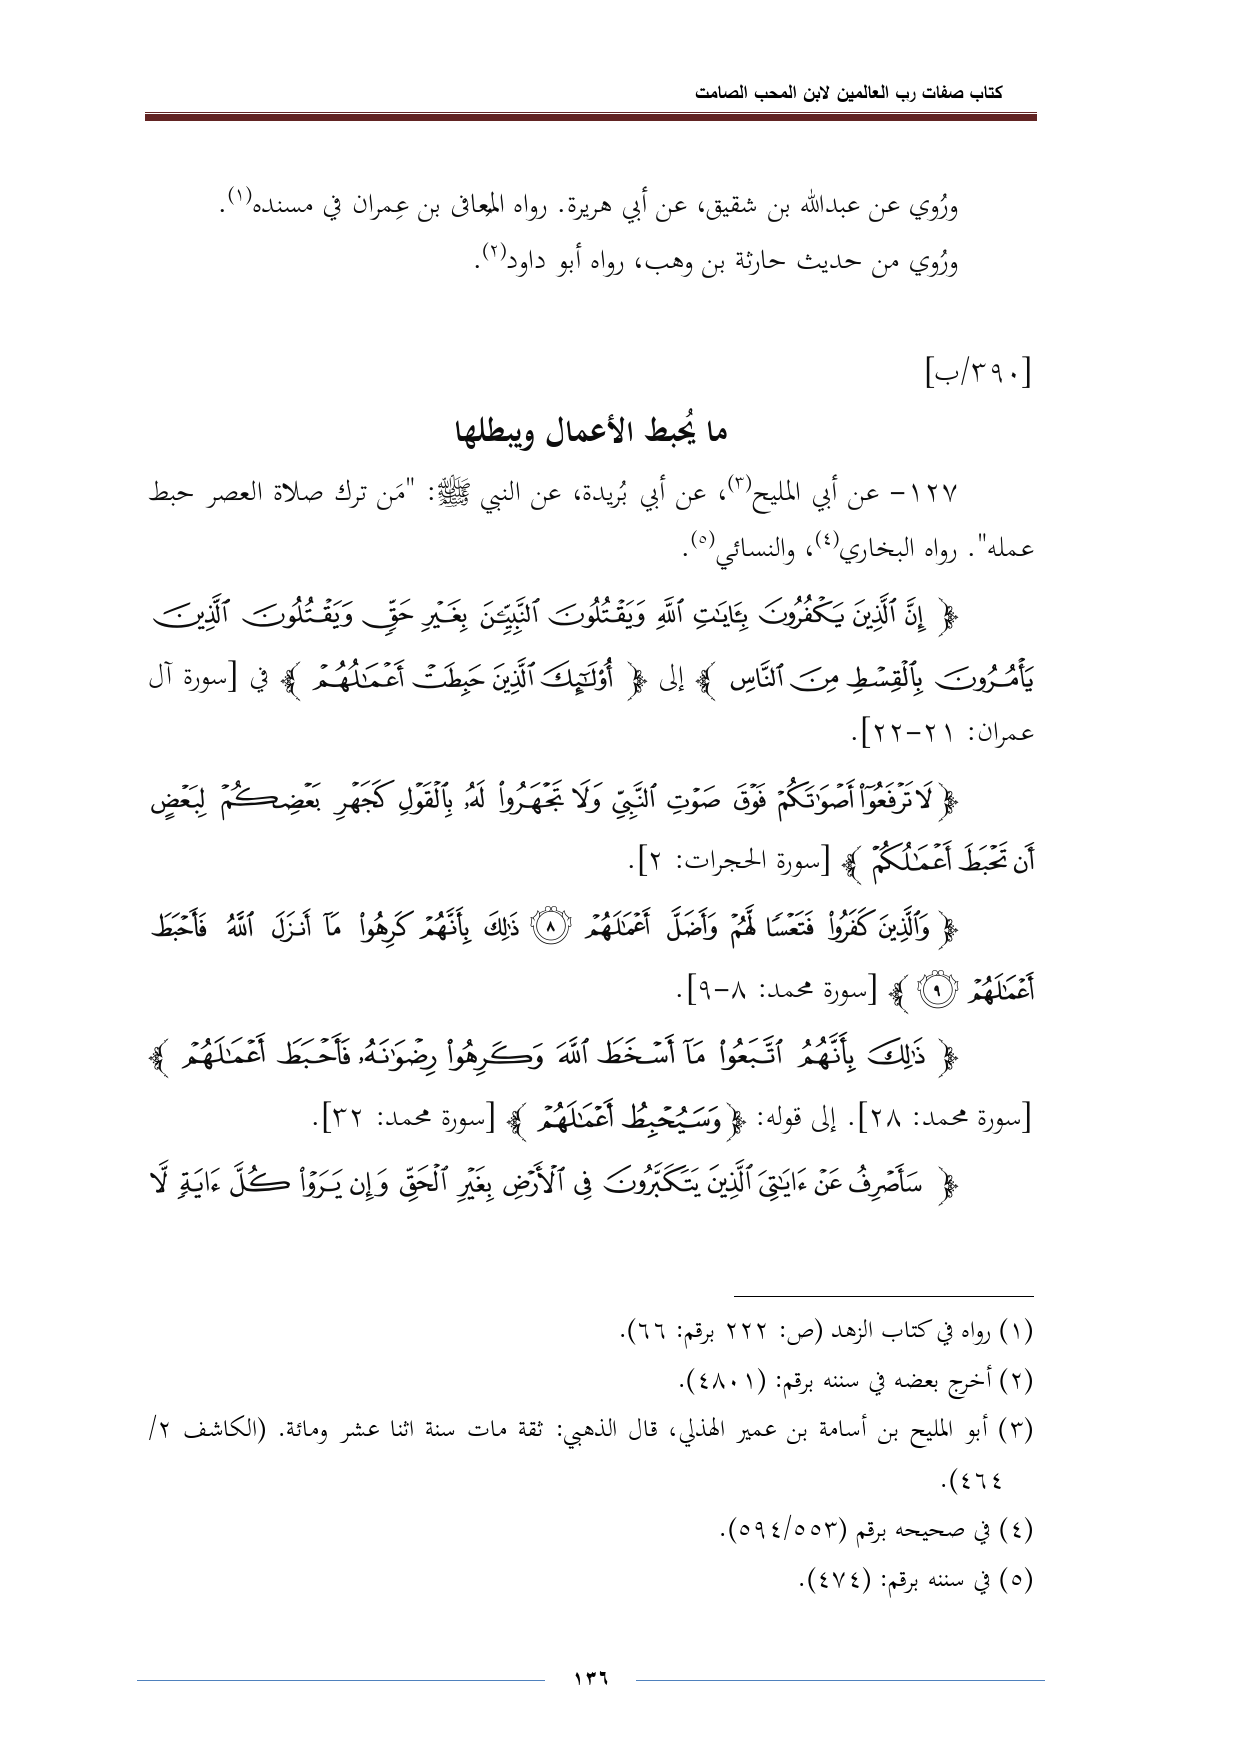 كتاب صفات رب العالمين لابن المحب الصامت
ورُوي عن عبدالله بن شقيق، عن أبي هريرة. رواه المُعافى بن عِمران في مسنده(١).
ورُوي من حديث حارثة بن وهب، رواه أبو داود(٢).
[٣٩٠/ب]
ما يُحبط الأعمال ويبطلها
١٢٧- عن أبي المليح(٣)، عن أبي بُريدة، عن النبي ﷺ: "مَن ترك صلاة العصر حبط
عمله". رواه البخاري(٤)، والنسائي(٥).
﴿ إِنَّ ٱلَّذِينَ يَكۡفُرُونَ بِـَٔايَٰتِ ٱللَّهِ وَيَقۡتُلُونَ ٱلنَّبِيِّـۧنَ بِغَيۡرِ حَقّٖ وَيَقۡتُلُونَ ٱلَّذِينَ
يَأۡمُرُونَ بِٱلۡقِسۡطِ مِنَ ٱلنَّاسِ ﴾ إلى ﴿ أُوْلَٰٓئِكَ ٱلَّذِينَ حَبِطَتۡ أَعۡمَٰلُهُمۡ ﴾ في [سورة آل
عمران: ٢١-٢٢].
﴿ لَا تَرۡفَعُوٓاْ أَصۡوَٰتَكُمۡ فَوۡقَ صَوۡتِ ٱلنَّبِيِّ وَلَا تَجۡهَرُواْ لَهُۥ بِٱلۡقَوۡلِ كَجَهۡرِ بَعۡضِكُمۡ لِبَعۡضٍ
أَن تَحۡبَطَ أَعۡمَٰلُكُمۡ ﴾ [سورة الحجرات: ٢].
﴿ وَٱلَّذِينَ كَفَرُواْ فَتَعۡسٗا لَّهُمۡ وَأَضَلَّ أَعۡمَٰلَهُمۡ ٨ ذَٰلِكَ بِأَنَّهُمۡ كَرِهُواْ مَآ أَنزَلَ ٱللَّهُ فَأَحۡبَطَ
أَعۡمَٰلَهُمۡ ٩ ﴾ [سورة محمد: ٨-٩].
﴿ ذَٰلِكَ بِأَنَّهُمُ ٱتَّبَعُواْ مَآ أَسۡخَطَ ٱللَّهَ وَكَرِهُواْ رِضۡوَٰنَهُۥ فَأَحۡبَطَ أَعۡمَٰلَهُمۡ ﴾
[سورة محمد: ٢٨]. إلى قوله: ﴿ وَسَيُحۡبِطُ أَعۡمَٰلَهُمۡ ﴾ [سورة محمد: ٣٢].
﴿ سَأَصۡرِفُ عَنۡ ءَايَٰتِيَ ٱلَّذِينَ يَتَكَبَّرُونَ فِي ٱلۡأَرۡضِ بِغَيۡرِ ٱلۡحَقِّ وَإِن يَرَوۡاْ كُلَّ ءَايَةٖ لَّا
(١) رواه في كتاب الزهد (ص: ٢٢٢ برقم: ٦٦).
(٢) أخرج بعضه في سننه برقم: (٤٨٠١).
(٣) أبو المليح بن أسامة بن عمير الهذلي، قال الذهبي: ثقة مات سنة اثنا عشر ومائة. (الكاشف ٢/
٤٦٤).
(٤) في صحيحه برقم (٥٩٤/٥٥٣).
(٥) في سننه برقم: (٤٧٤).
١٣٦